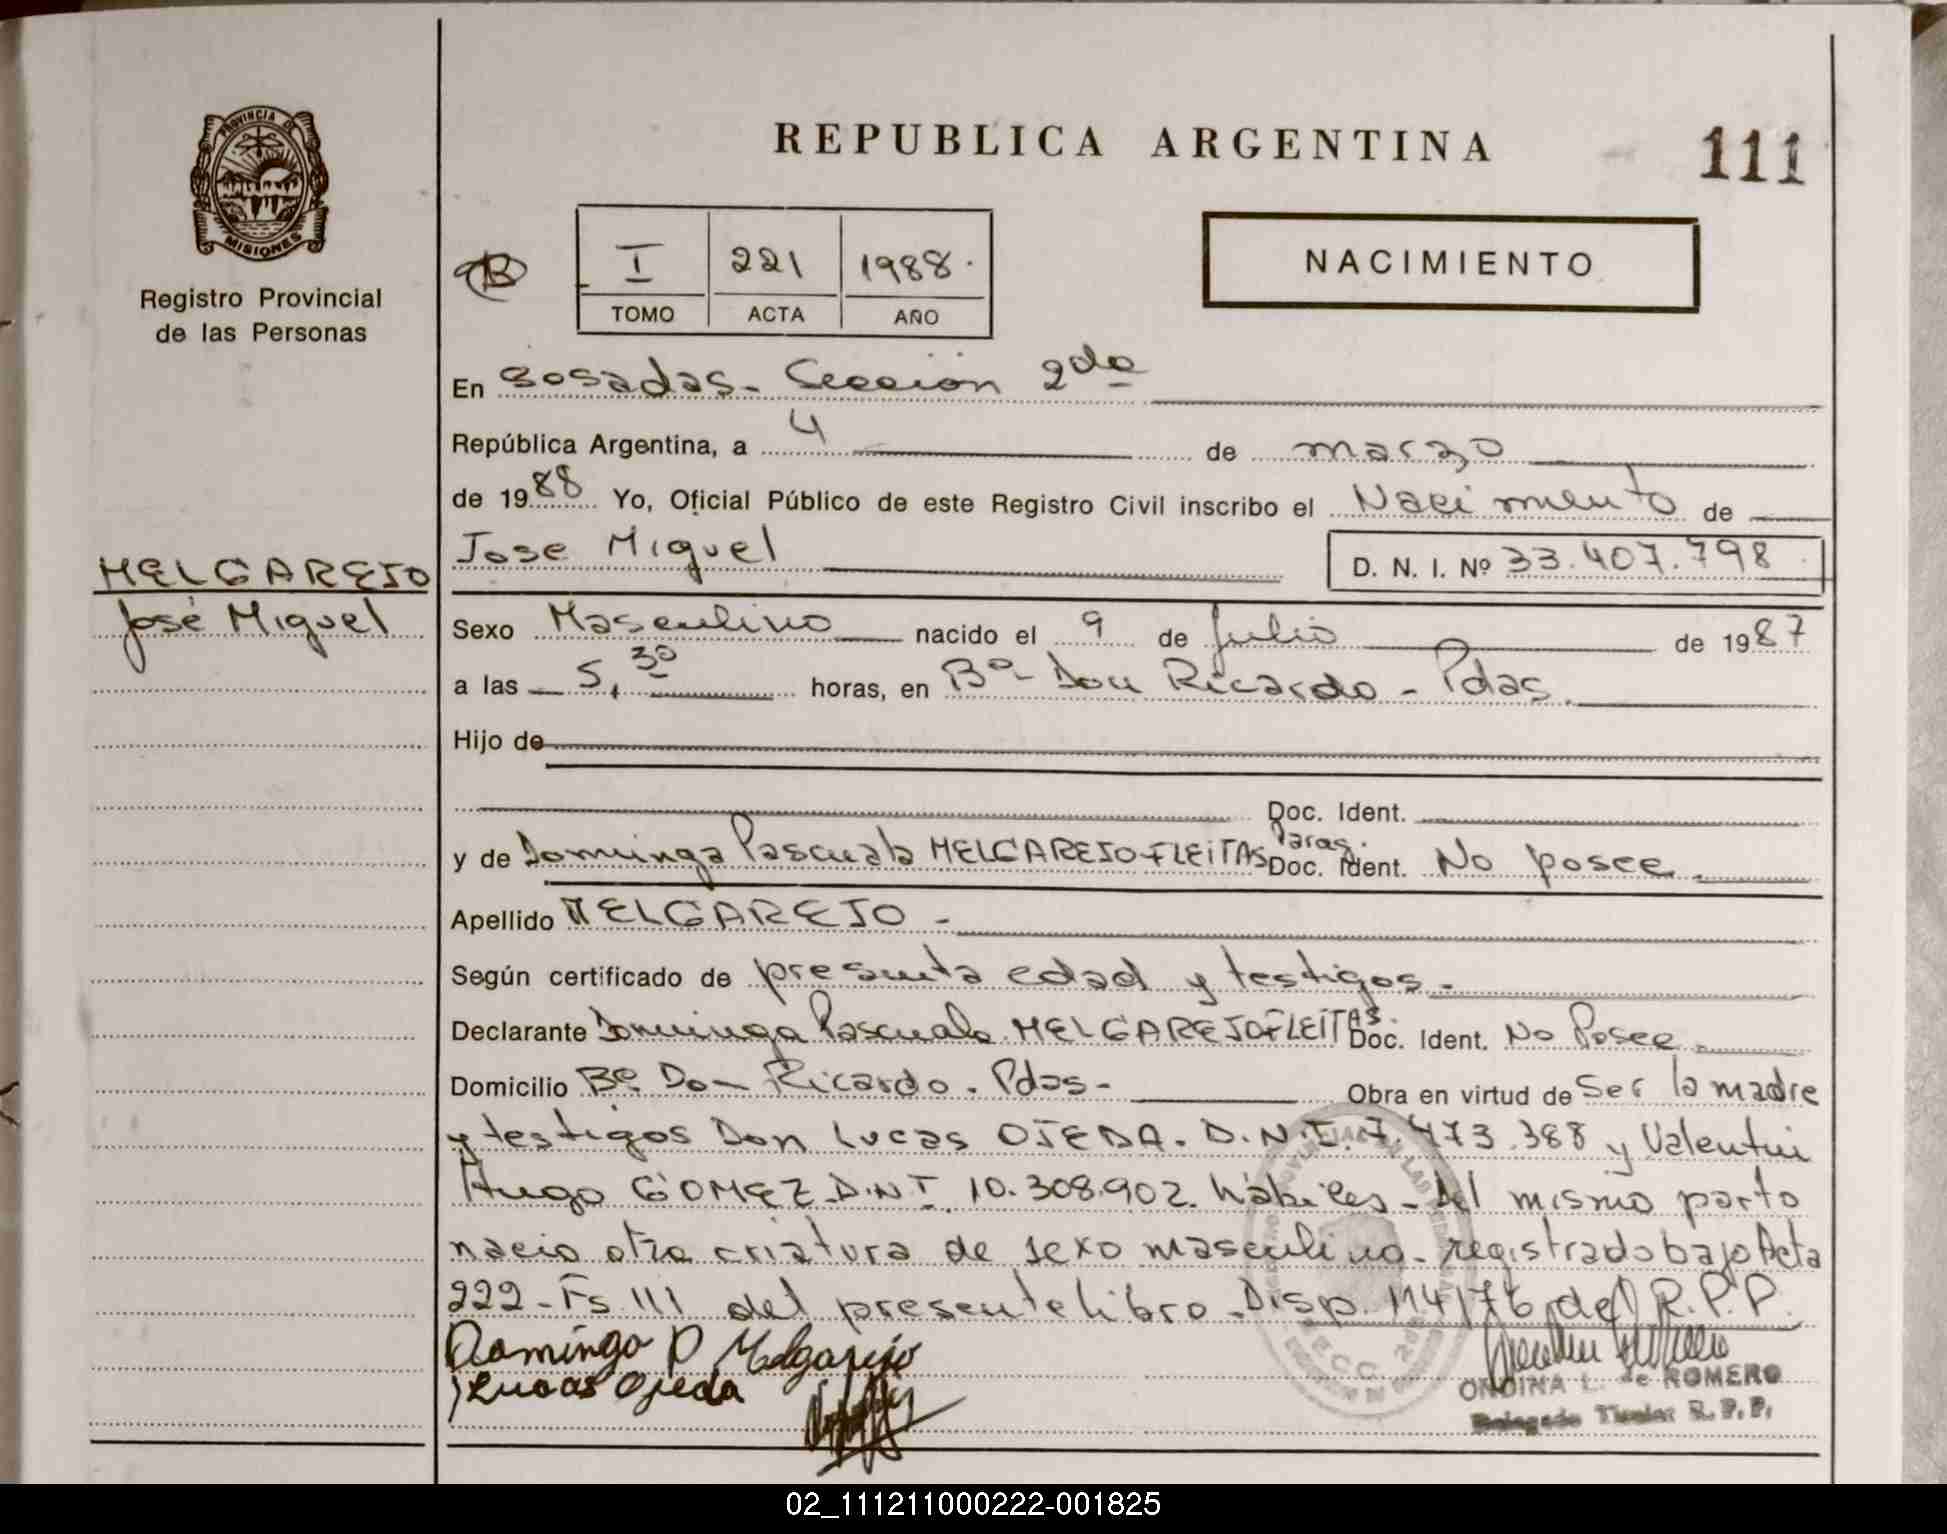 PROVINCIA DE
MISIONES
Registro Provincial
de las Personas
MELGAREJO
José Miguel
REPUBLICA ARGENTINA
111
I 221 1988.
TOMO ACTA AÑO
NACIMIENTO
En Posadas - Sección 2da
República Argentina, a 4 de marzo
de 1988 Yo, Oficial Público de este Registro Civil inscribo el Nacimiento de
Jose Miguel D. N. I. Nº 33.407.798
Sexo Masculino nacido el 9 de Julio de 1987
a las 5,30 horas, en Bº Don Ricardo - Pdas.
Hijo de
Doc. Ident.
y de Dominga Pascuala MELGAREJO FLEITAS Parag. Doc. Ident. No posee
Apellido MELGAREJO -
Según certificado de presunta edad y testigos -
Declarante Dominga Pascuala MELGAREJO FLEITAS. Doc. Ident. No Posee
Domicilio Bº Don Ricardo. Pdas - Obra en virtud de Ser la madre
y testigos Don Lucas OJEDA. D.N.I. 7.473.388 y Valentin
Hugo GOMEZ D.N.I. 10.308.902. hábiles - Del mismo parto
nacio otra criatura de sexo masculino - registrado bajo Acta
222 - Fs 111 del presente libro - Disp. 114/76 del R.P.P.
Domingo P Melgarejo
Lucas Ojeda
ONDINA L. de ROMERO
Delegada Titular R.P.P.
02_111211000222-001825